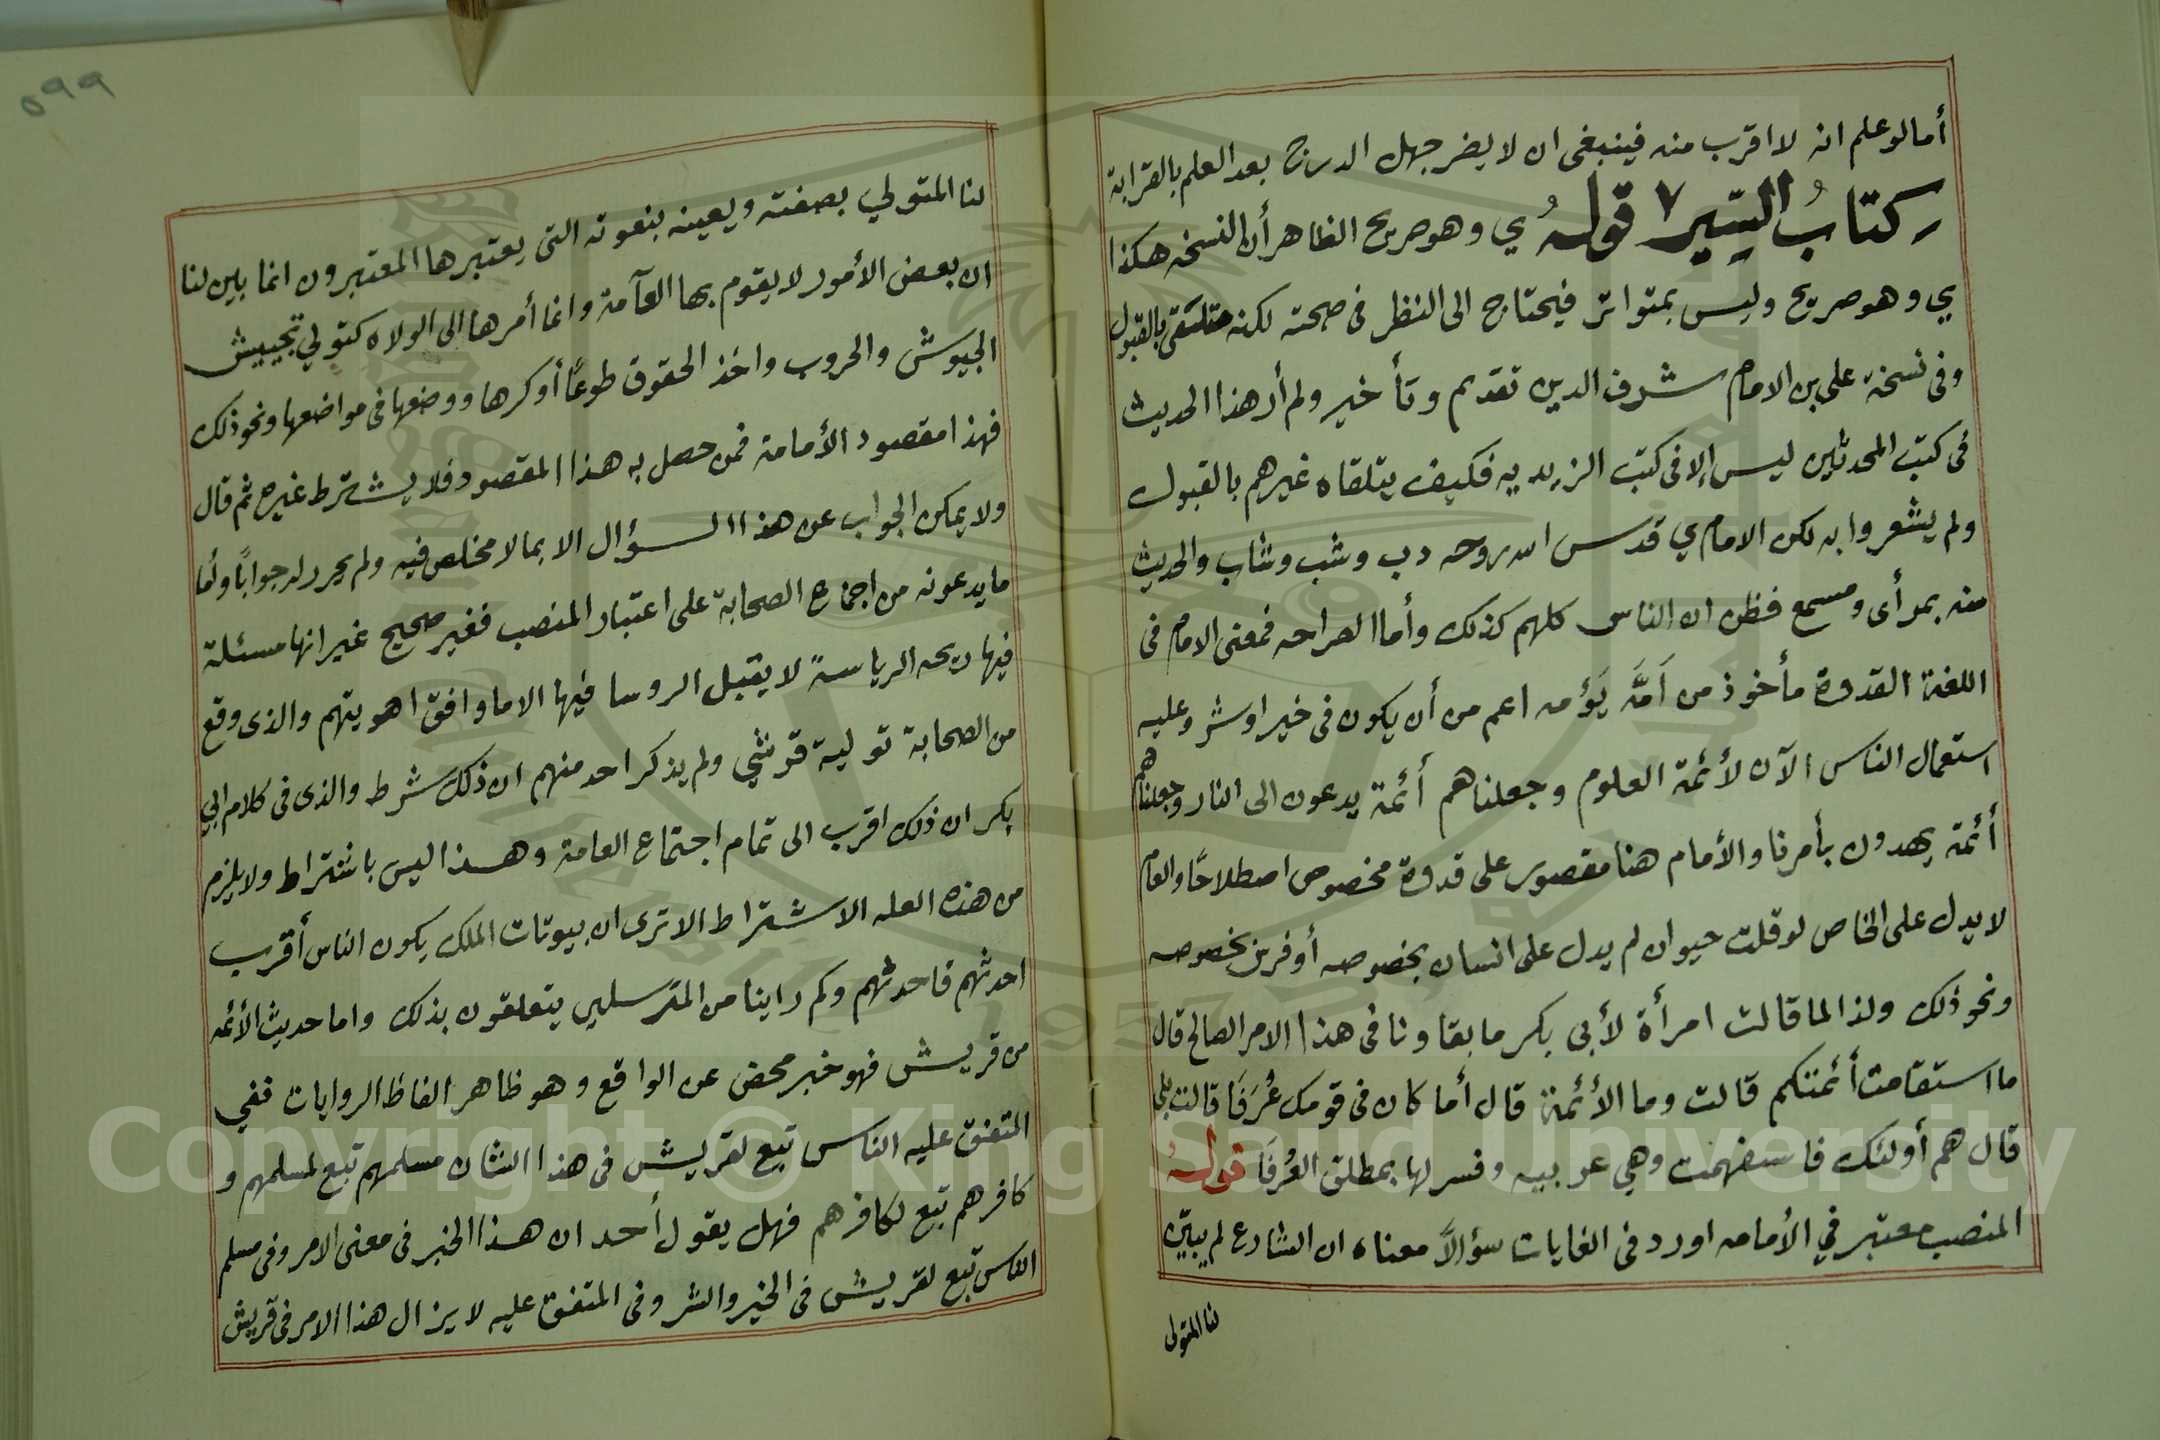 أما لو علم انه لا اقرب منه فينبغى ان لا يضر جهل الدرج بعد العلم بالقرابة
كتابُ السِّير ٧ قولهُ ي وهو صريح الظاهر أن النسخه هكذا
ي وهو صريح وليس بمتواتر فيحتاج الى النظر فى صحته لكنه متلقى بالقبول
وفى نسخة على بن الامام شرف الدين تقديم وتأخير ولم أر هذا الحديث
فى كتب المحدثين ليس إلا فى كتب الزيديه فكيف يتلقاه غيرهم بالقبول
ولم يشعروا به لكن الامام ي قدس الله روحه دب وشب وشاب والحديث
منه بمرأى ومسمع فظن ان الناس كلهم كذلك وأما الصراحه فمعنى الامام فى
اللغة القدوة مأخوذ من اَمَّه يَؤمه اعم من أن يكون فى خير او شر وعليه
استعمال الناس الآن لأئمة العلوم وجعلناهم أئمة يدعون الى النار وجعلناهم
أئمة يهدون بأمرنا والأمام هنا مقصور على قدوة مخصوص اصطلاحًا والعام
لا يدل على الخاص لو قلت حيوان لم يدل على انسان بخصوصه أو فرس بخصوصه
ونحو ذلك ولذا لما قالت امرأة لأبى بكر ما بقاونا فى هذا الامر الصالح قال
ما استقامت أئمتكم قالت وما الأئمة قال أما كان فى قومك عُرَفَا قالت بلى
قال هم أولئك فاستفهمت وهي عربيه وفسر لها بمطلق العُرفَا قولهُ
المنصب معتبر في الأمامه اورد فى الغايات سؤالاً معناه ان الشارع لم يبيّن
لنا المتولى
٥٩٩
لنا المتولي بصفته ويعينه بنعوته التى يعتبرها المعتبرون انما بين لنا
ان بعض الأمور لا يقوم بها العآمة وانما أمرها الى الولاه كتولي تجييش
الجيوش والحروب واخذ الحقوق طوعًا أو كرها ووضعها فى مواضعها ونحو ذلك
فهذا مقصود الأمامة فمن حصل به هذا المقصود فلا يشترط غيره ثم قال
ولا يمكن الجواب عن هذا السؤال الا بما لا مخلص فيه ولم يحرر له جوابًا وأما
ما يدعونه من اجماع الصحابة على اعتبار المنصب فغير صحيح غير انها مسئلة
فيها ريحه الرياسة لا يقبل الروسا فيها الا ما وافق اهويتهم والذى وقع
من الصحابة تولية قرشي ولم يذكر احد منهم ان ذلك شرط والذى فى كلام ابي
بكر ان ذلك اقرب الى تمام اجتماع العامة وهذا ليس باشتراط ولا يلزم
من هذه العله الاشتراط الا ترى ان بيوتات الملك يكون الناس أقرب
احدثهم فاحدثهم وكم راينا من المترسلين يتعلقون بذلك واما حديث الأئمه
من قريش فهو خبر محض عن الواقع وهو ظاهر الفاظ الروايات ففي
المتفق عليه الناس تبع لقريش فى هذا الشان مسلمهم تبع لمسلمهم و
كافرهم تبع لكافرهم فهل يقول أحد ان هذا الخبر فى معنى الامر وفى مسلم
الناس تبع لقريش فى الخير والشر وفى المتفق عليه لا يزال هذا الامر فى قريش
Copyright © King Saud University